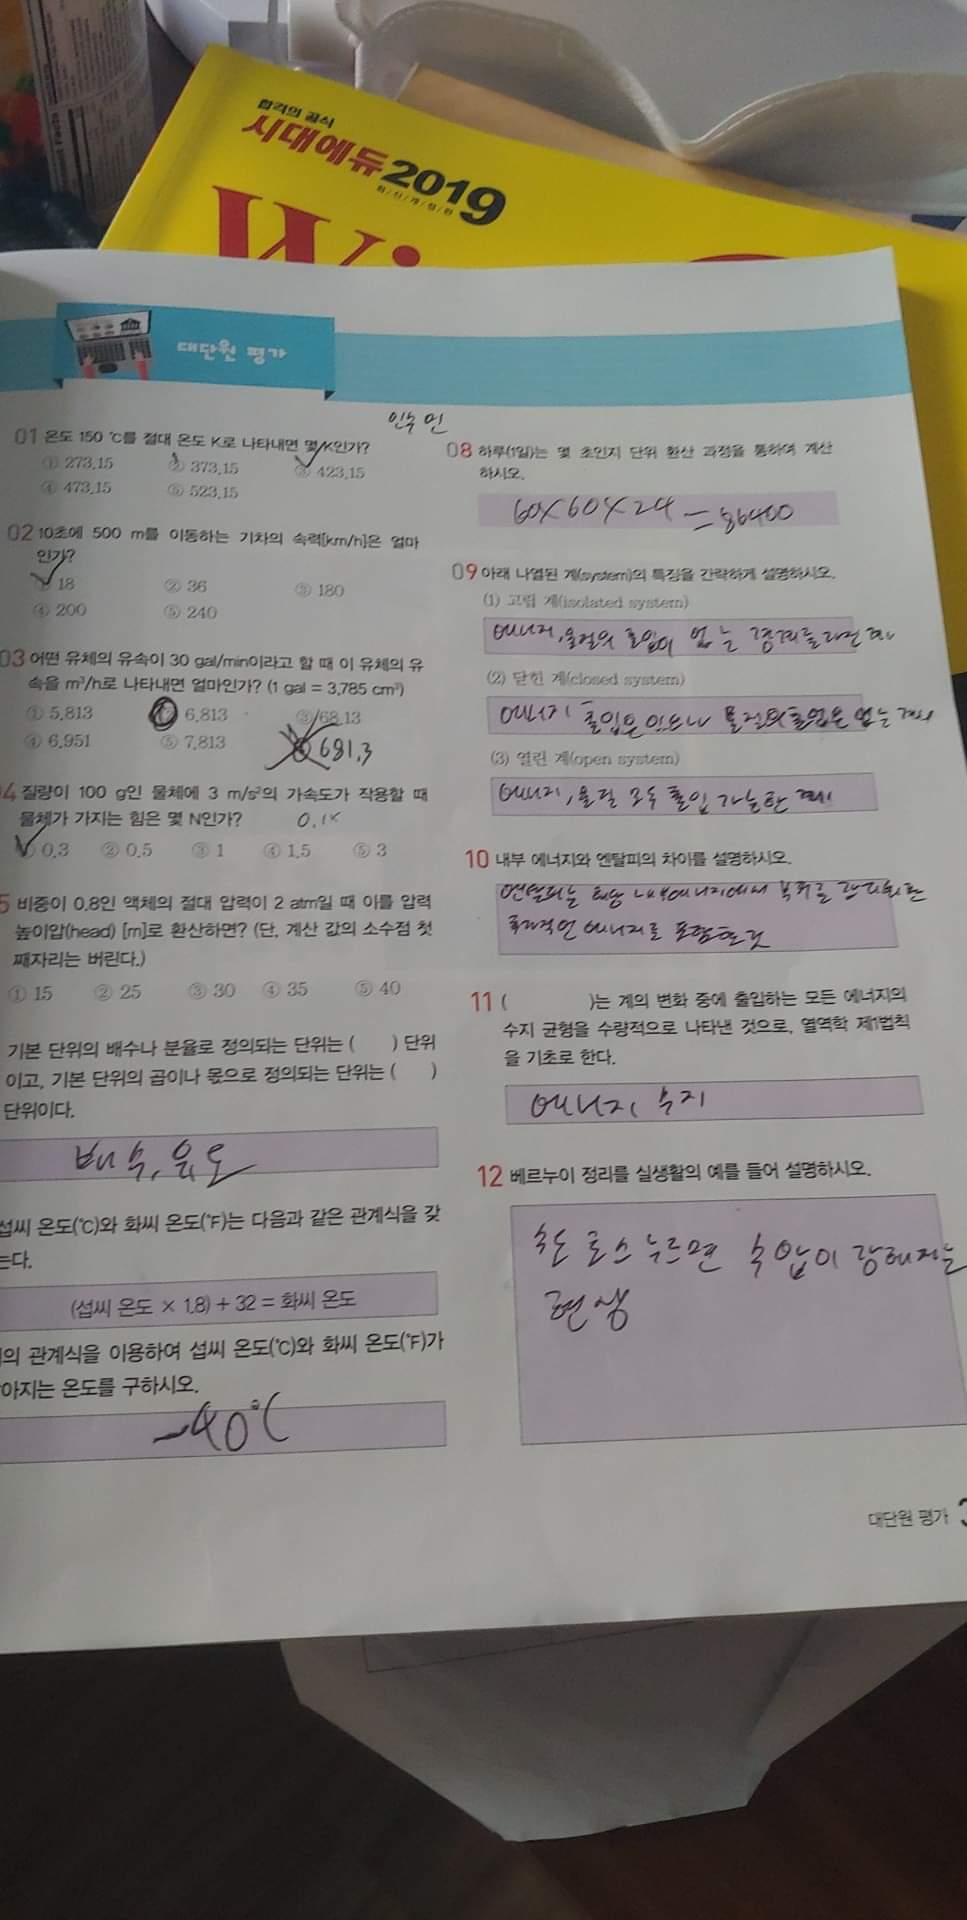 합격의 공식
시대에듀
2019
최/신/개/정/판
Wi
대단원 평가
01 온도 150 ℃를 절대 온도 K로 나타내면 몇 K인가?
① 273.15 ② 373.15 ③ 423.15
④ 473.15 ⑤ 523.15
02 10초에 500 m를 이동하는 기차의 속력[km/h]은 얼마
인가?
① 18 ② 36 ③ 180
④ 200 ⑤ 240
03 어떤 유체의 유속이 30 gal/min이라고 할 때 이 유체의 유
속을 m³/h로 나타내면 얼마인가? (1 gal = 3,785 cm³)
① 5.813 ② 6.813 ③ 68.13
④ 6.951 ⑤ 7.813 681.3
4 질량이 100 g인 물체에 3 m/s²의 가속도가 작용할 때
물체가 가지는 힘은 몇 N인가? 0.1×
① 0.3 ② 0.5 ③ 1 ④ 1.5 ⑤ 3
5 비중이 0.8인 액체의 절대 압력이 2 atm일 때 이를 압력
높이압(head) [m]로 환산하면? (단, 계산 값의 소수점 첫
째자리는 버린다.)
① 15 ② 25 ③ 30 ④ 35 ⑤ 40
기본 단위의 배수나 분율로 정의되는 단위는 ( ) 단위
이고, 기본 단위의 곱이나 몫으로 정의되는 단위는 ( )
단위이다.
배수, 유도
섭씨 온도(℃)와 화씨 온도(℉)는 다음과 같은 관계식을 갖
는다.
(섭씨 온도 × 1.8) + 32 = 화씨 온도
의 관계식을 이용하여 섭씨 온도(℃)와 화씨 온도(℉)가
아지는 온도를 구하시오.
-40℃
08 하루(1일)는 몇 초인지 단위 환산 과정을 통하여 계산
하시오.
60×60×24 = 86400
09 아래 나열된 계(system)의 특징을 간략하게 설명하시오.
(1) 고립 계(isolated system)
에너지, 물질의 출입이 없는 경계를 가진 계
(2) 닫힌 계(closed system)
에너지 출입은 있으나 물질의 출입은 없는 계
(3) 열린 계(open system)
에너지, 물질 모두 출입 가능한 계
10 내부 에너지와 엔탈피의 차이를 설명하시오.
엔탈피는 내부에너지에서
에너지를 포함한 것
11 ( )는 계의 변화 중에 출입하는 모든 에너지의
수지 균형을 수량적으로 나타낸 것으로, 열역학 제1법칙
을 기초로 한다.
에너지 수지
12 베르누이 정리를 실생활의 예를 들어 설명하시오.
호스 누르면 수압이 강해지는
현상
대단원 평가